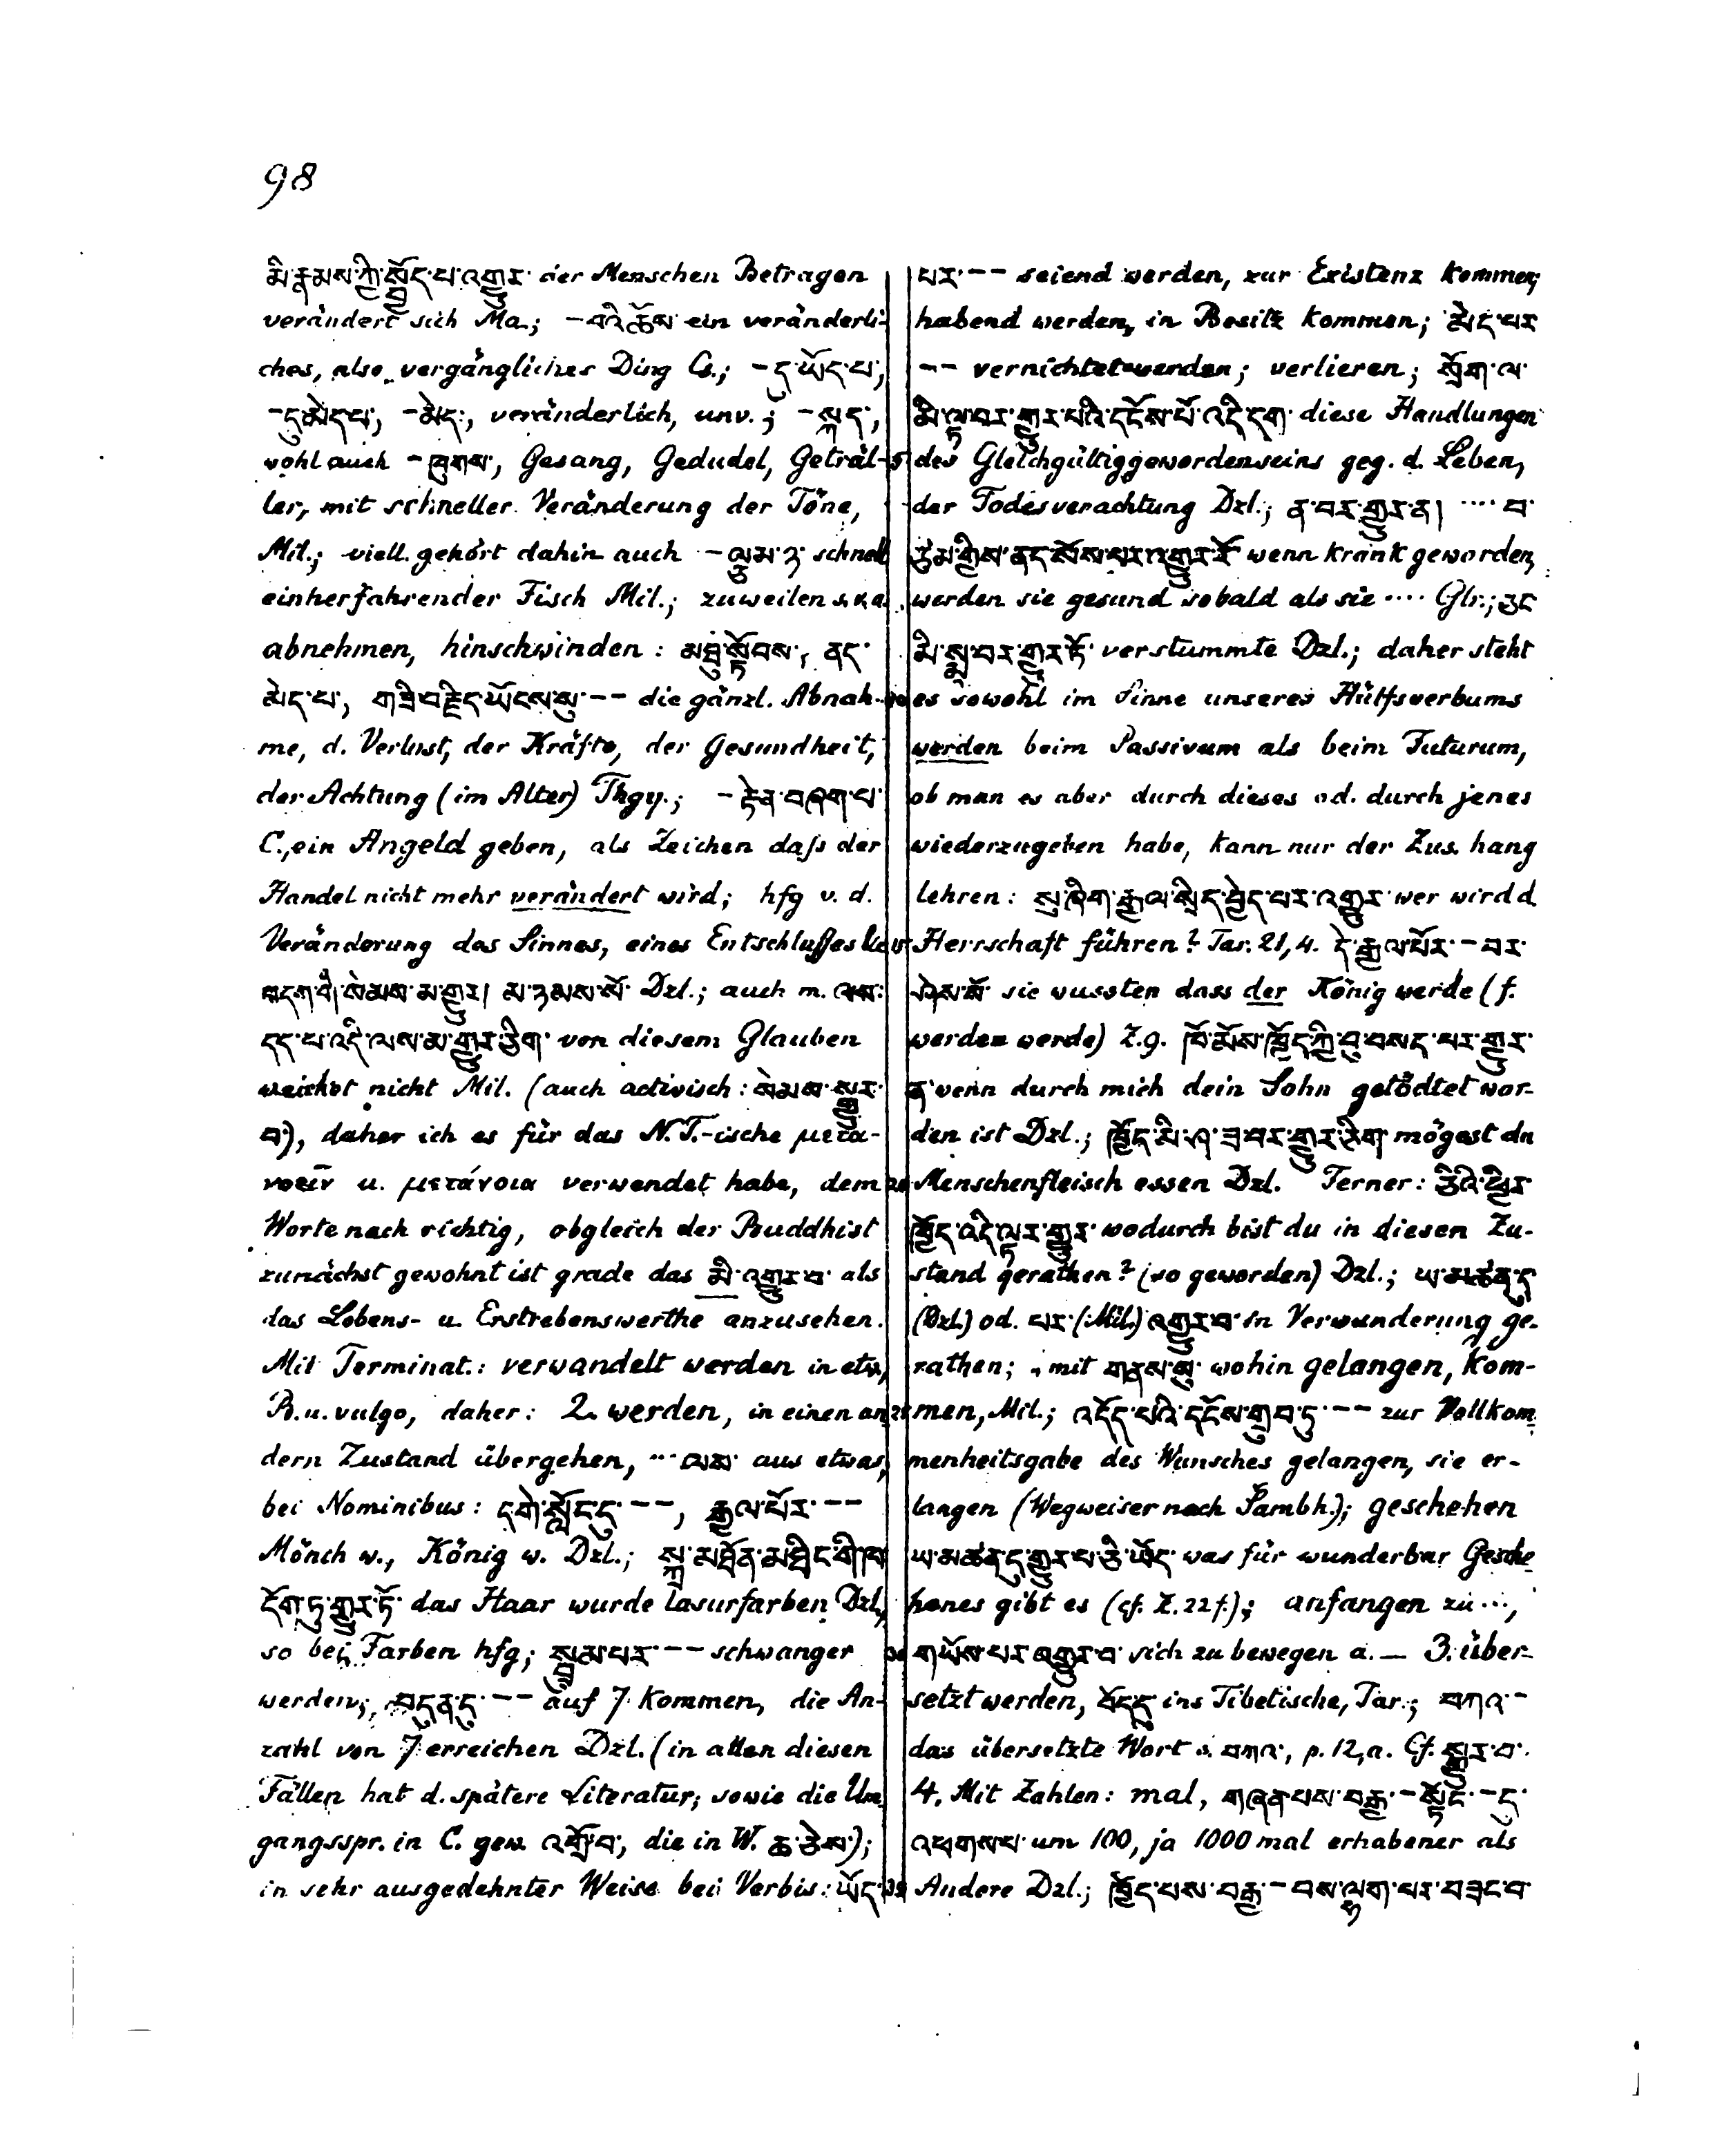 98
མི་རྣམས་ཀྱི་སྤྱོད་པ་འགྱུར་ der Menschen Betragen
verändert sich Ma.; -བའི་ཆོས་ ein veränderli-
ches, also vergängliches Ding Cs.; -དུ་ཡོད་པ་,
-དུ་མེད་པ་, -མེད་, veränderlich, unv.; -སྐད་,
wohl auch -ཁུགས་, Gesang, Gedudel, Geträl-
ler, mit schneller Veränderung der Töne,
Mil.; viell. gehört dahin auch - schnell
einherfahrender Fisch Mil.; zuweilen s.v.a.
abnehmen, hinschwinden: མཐུ་སྟོབས་, ནད་
མེད་པ་, གཟི་བརྗིད་ཡོངས་སུ་-- die gänzl. Abnah-
me, d. Verlust, der Kräfte, der Gesundheit,
der Achtung (im Alter) Thgy.; -རྟེན་བཞག་པ་
C., ein Angeld geben, als Zeichen daß der
Handel nicht mehr verändert wird; hfg v. d.
Veränderung des Sinnes, eines Entschlußes
བདག་གི་སེམས་མ་གྱུར། མ་ཉམས་སོ་ Dzl.; auch m. ལས་:
དད་པ་འདི་ལས་མ་གྱུར་ཅིག་ von diesem Glauben
weichet nicht Mil. (auch activisch: སེམས་སྒྱུར་
བ་), daher ich es für das N.T.-ische μετα-
νοεῖν u. μετάνοια verwendet habe, dem
Worte nach richtig, obgleich der Buddhist
zunächst gewohnt ist grade das མི་འགྱུར་བ་ als
das Lobens- u. Erstrebenswerthe anzusehen.
Mit Terminat.: verwandelt werden in etw.,
B. u. vulgo, daher: 2. werden, in einen an-
dern Zustand übergehen, ... ལས་ aus etwas,
bei Nominibus: དགེ་སློང་དུ་--, རྒྱལ་པོར་--
Mönch w., König w. Dzl.; སྐྲ་མཐོན་མཐིང་གི་ཁ་
དོག་ཏུ་གྱུར་ཏོ་ das Haar wurde lasurfarben Dzl.,
so bei Farben hfg; སྦྲུམ་པར་-- schwanger
werden; བདུན་དུ་-- auf 7 kommen, die An-
zahl von 7 erreichen Dzl. (in allen diesen
Fällen hat d. spätere Literatur, sowie die Um-
gangsspr. in C. gew. འགྲོ་བ་, die in W. ཆ་ཅེས་);
in sehr ausgedehnter Weise bei Verbis: ཡོད་
པར་-- seiend werden, zur Existenz kommen;
habend werden, in Besitz kommen; མེད་པར་
-- vernichtet werden; verlieren; སྲོག་ལ་
མི་ལྟ་བར་གྱུར་པའི་དངོས་པོ་འདི་དག་ diese Handlungen
des Gleichgültiggewordenseins geg. d. Leben,
der Todesverachtung Dzl.; ན་བར་གྱུར་ན། .... བ་
ཙམ་གྱིས་ནད་སོས་པར་འགྱུར་རོ་ wenn krank geworden,
werden sie gesund sobald als sie .... Glr.; ཅང་
མི་སྨྲ་བར་གྱུར་ཏོ་ verstummte Dzl.; daher steht
es sowohl im Sinne unseres Hülfsverbums
werden beim Passivum als beim Futurum,
ob man es aber durch dieses od. durch jenes
wiederzugeben habe, kann nur der Zus. hang
lehren: སུ་ཞིག་རྒྱལ་སྲིད་བྱེད་པར་འགྱུར་ wer wird d.
Herrschaft führen? Tar. 21,4. དེ་རྒྱལ་པོར་-བར་
ཤེས་སོ་ sie wussten dass der König werde (f.
werden werde) Z.g. ཁོ་མོས་ཁྱོད་ཀྱི་བུ་བསད་པར་གྱུར་
ན་ wenn durch mich dein Sohn getödtet wor-
den ist Dzl.; ཁྱོད་མི་ཤ་ཟ་བར་གྱུར་ཅིག་ mögest du
Menschenfleisch essen Dzl. Ferner: ཅིའི་ཕྱིར་
ཁྱོད་འདི་ལྟར་གྱུར་ wodurch bist du in diesen Zu-
stand gerathen? (so geworden) Dzl.; ཡ་མཚན་དུ་
(Dzl.) od. པར་ (Mil.) འགྱུར་བ་ in Verwunderung ge-
rathen; mit གནས་སུ་ wohin gelangen, kom-
men, Mil.; འདོད་པའི་དངོས་གྲུབ་ཏུ་-- zur Vollkom-
menheitsgabe des Wunsches gelangen, sie er-
langen (Wegweiser nach Sambh.); geschehen
ཡ་མཚན་དུ་གྱུར་པ་ཅི་ཡོད་ was für wunderbar Gesche-
henes gibt es (cf. Z. 22 f.); anfangen zu ...,
གཡོས་པར་འགྱུར་བ་ sich zu bewegen a. — 3. über-
setzt werden, བོད་དུ་ ins Tibetische, Tar.; བཀའ་-
das übersetzte Wort s. བཀའ་, p. 12,a. Cf. སྒྱུར་བ་.
4. Mit Zahlen: mal, གཞན་པས་བརྒྱ་-སྟོང་-དུ་
འཕགས་པ་ um 100, ja 1000 mal erhabener als
Andere Dzl.; ཁྱོད་པས་བརྒྱ་-བས་ལྷག་པར་བཟང་བ་